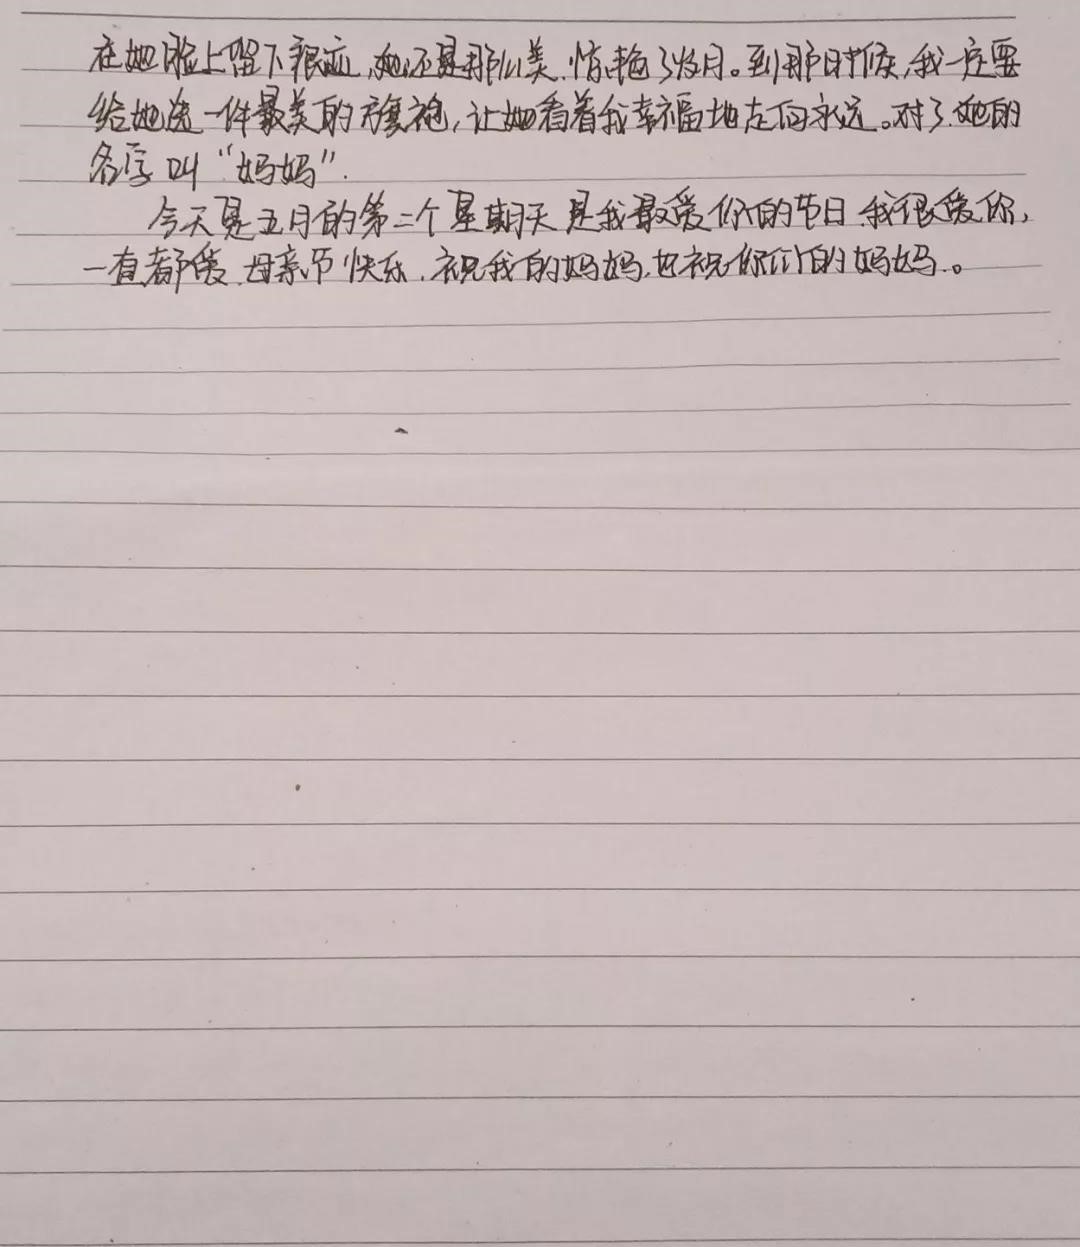 在她脸上留下痕迹,她还是那么美,惊艳了岁月。到那时候,我一定要
给她选一件最美的旗袍,让她看着我幸福地走向永远。对了,她的
名字叫“妈妈”.
今天是五月的第二个星期天是我最爱你的节日.我很爱你,
一直都爱.母亲节快乐.祝我的妈妈.也祝你们的妈妈.。